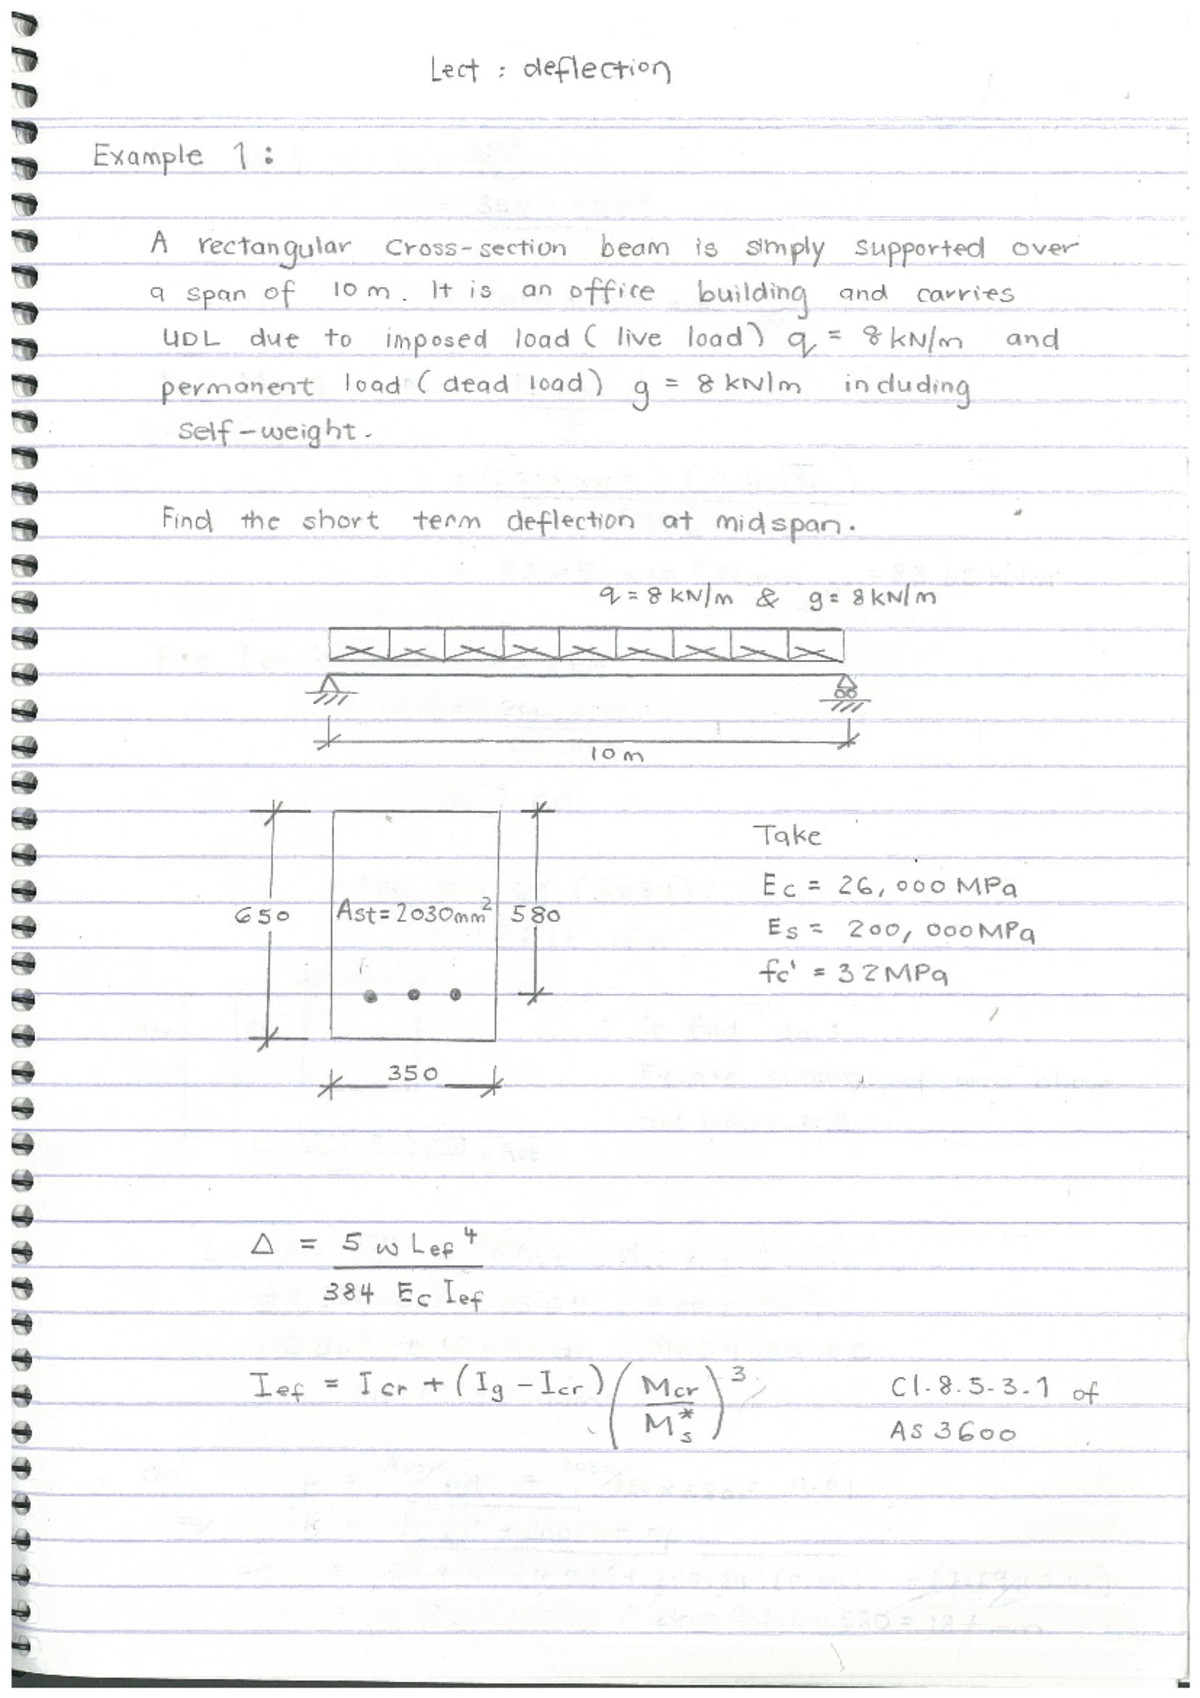 Lect : deflection
Example 1 :
A rectangular cross-section beam is simply supported over
a span of 10 m. It is an office building and carries
UDL due to imposed load ( live load ) q = 8 kN/m and
permanent load ( dead load ) g = 8 kN/m including
self-weight.
Find the short term deflection at midspan.
q = 8 kN/m & g = 8 kN/m
10 m
Take
Ec = 26, 000 MPa
650 Ast = 2030mm² 580
Es = 200, 000 MPa
fc' = 32 MPa
350
Δ = 5 w Lef⁴
384 Ec Ief
Ief = Icr + (Ig - Icr) (Mcr / Ms*)³ Cl. 8.5.3.1 of
AS 3600